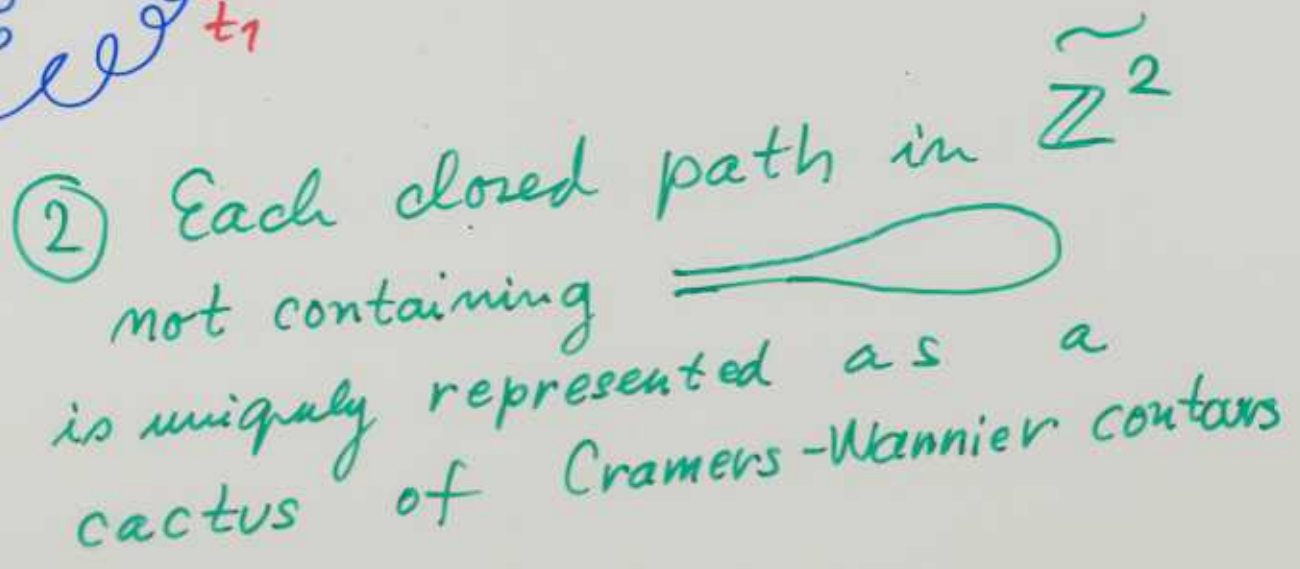 t₁
② Each closed path in \widetilde{ℤ}²
not containing
is uniquely represented as a
cactus of Cramers-Wannier contours